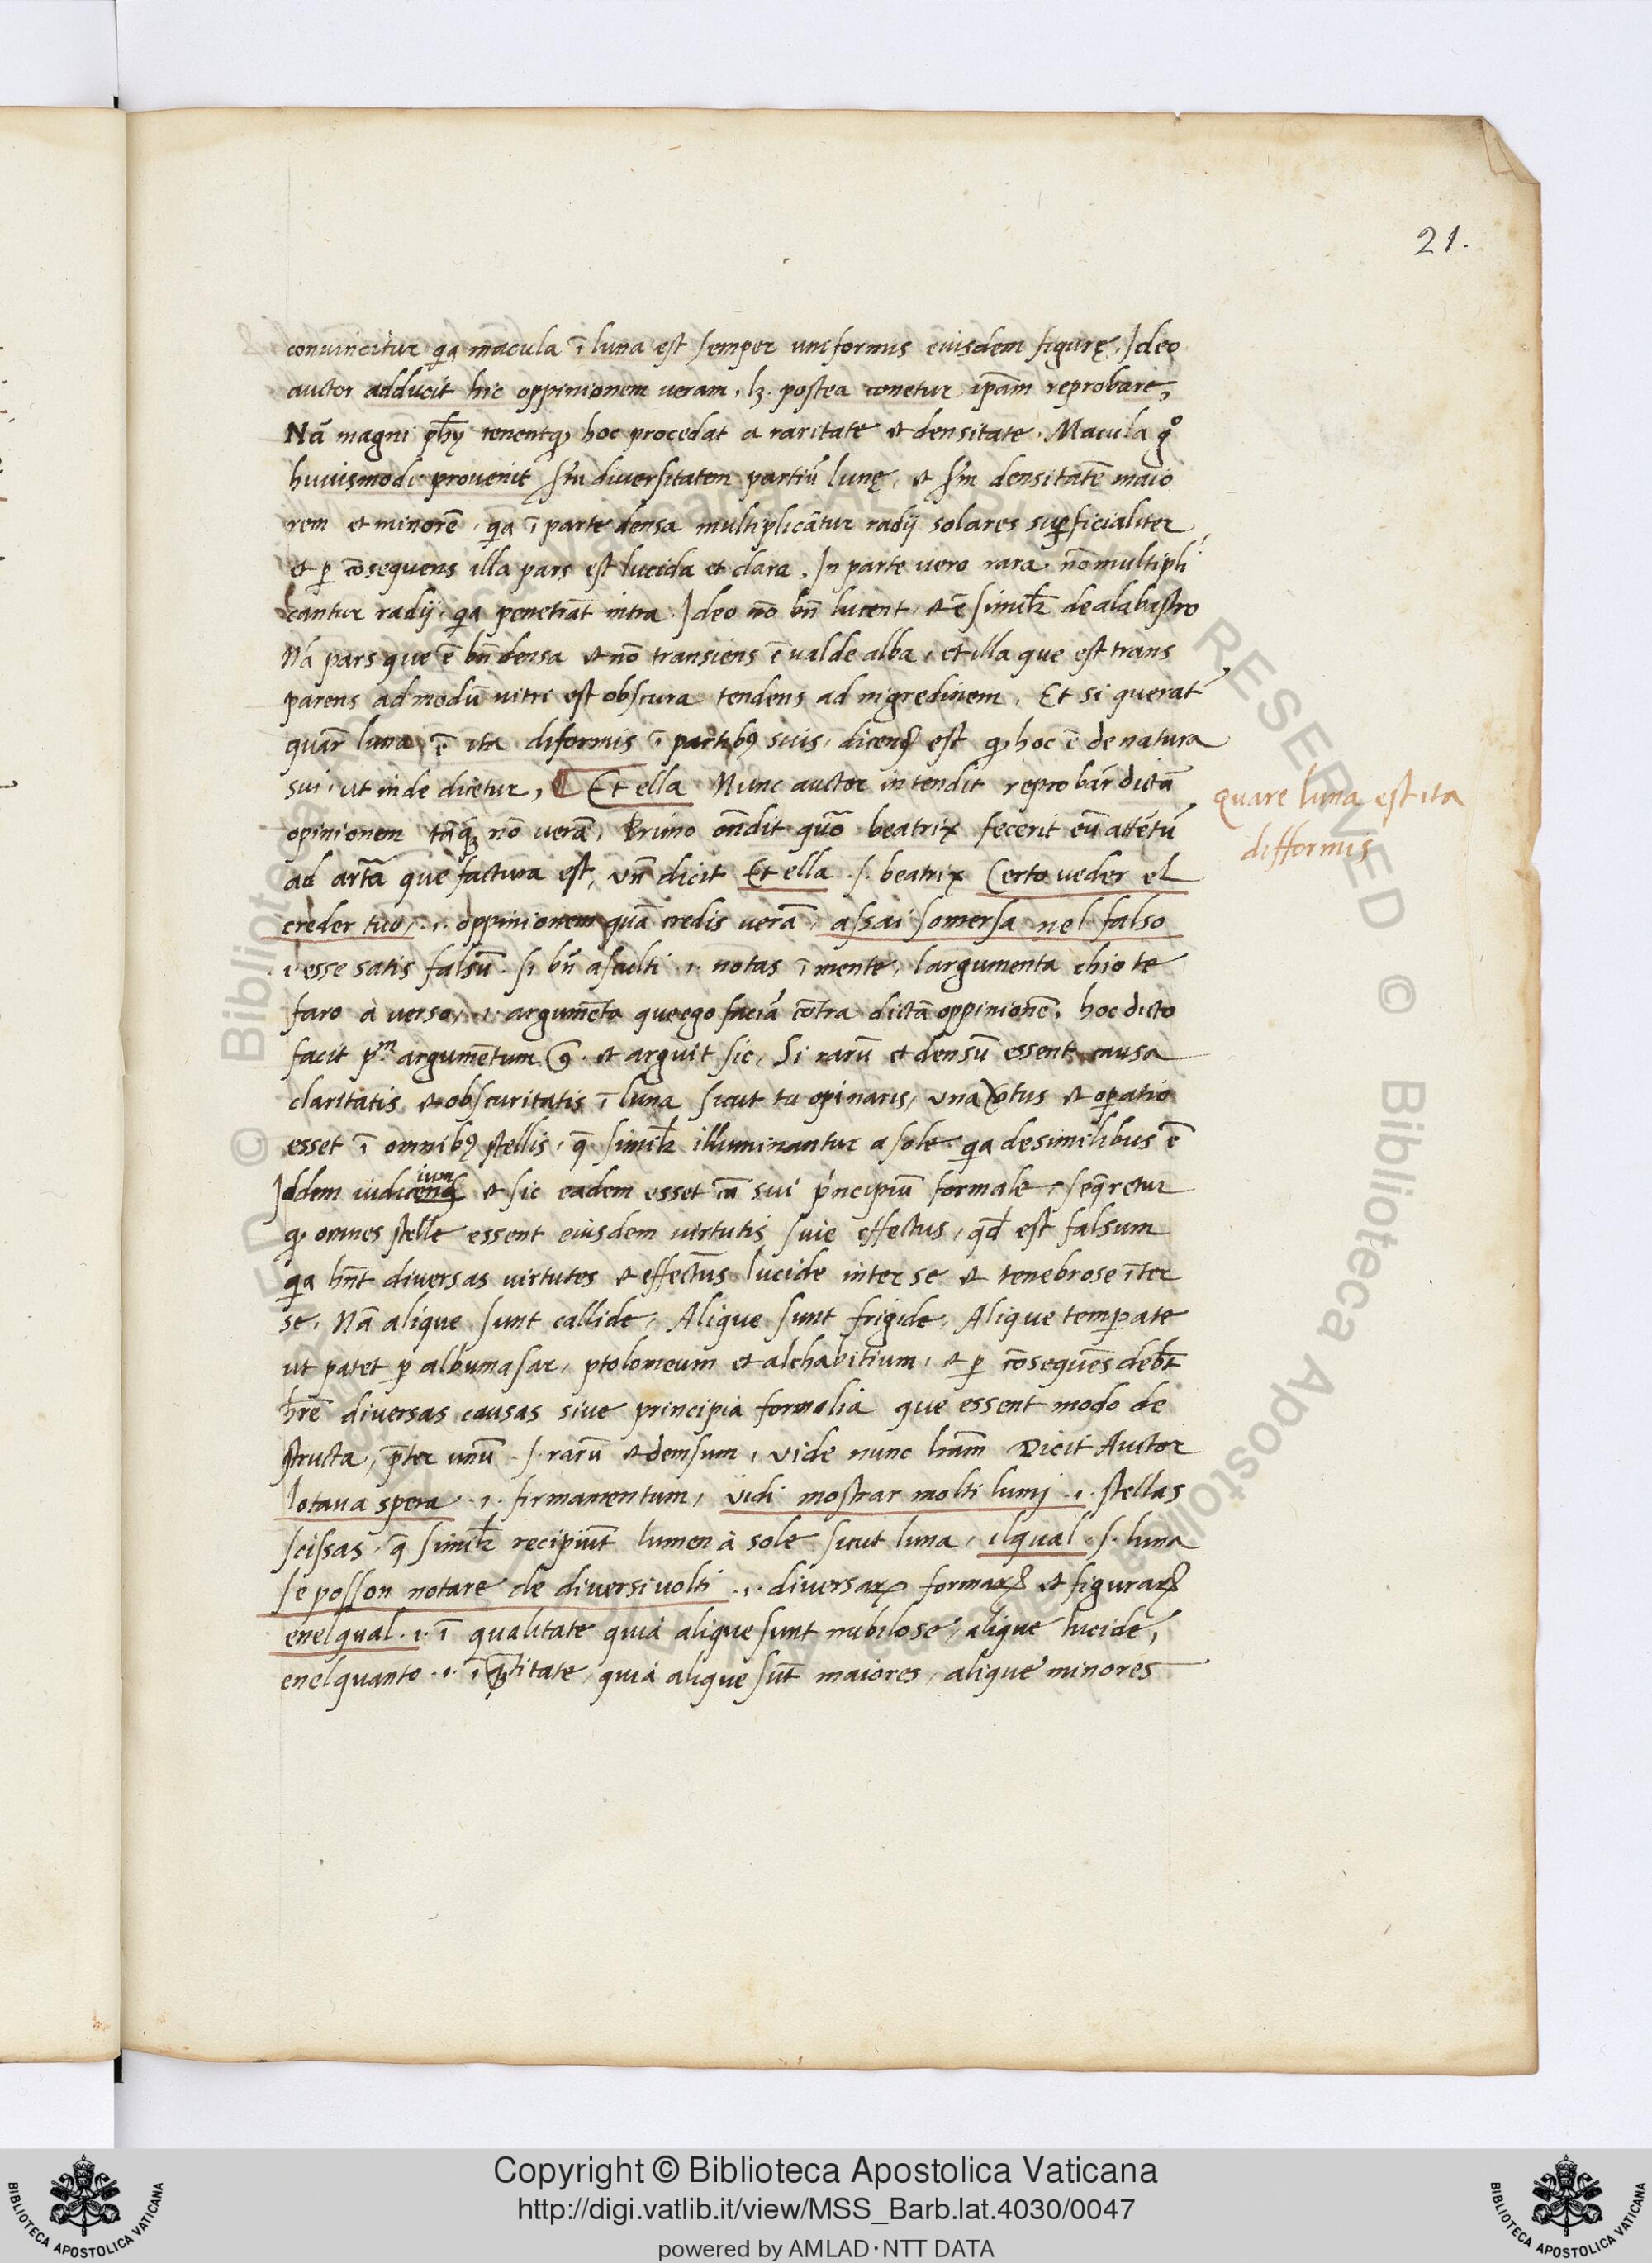 21.
conuincitur qa macula ī luna est semper uniformis eiusdem figurę, Ideo
auctor adducit hic oppinionem veram, lꝫ. postea conetur ipām reprobare,
Nā magni phỹ tenent ꝙ hoc procedat a raritate et densitate. Macula gͦ
huiusmodi prouenit s̄m diuersitatem partiū lunę, et s̄m densitatē maio
rem et minorē, qa ī parte densa multiplicātur radij solares suꝑficialiter
et ꝑ cōsequens illa pars est lucida et clara. In parte uero rara nō multipli
cantur radij, qa penetrāt intra. Ideo nō bn̄ lucent, et ē simil̄r de alabastro
Nā pars que ē bn̄ densa et nō transiens ē ualde alba, et illa que est trans
parens ad modū uitri est obscura tendens ad nigredinem. Et si querat᷒
quar̄ luna ē ita diformis ī partibꝰ suis, dicend̄ est ꝙ hoc ē de natura
sui, ut inde dicetur, ¶ Et ella Nunc auctor intendit reprobar̄ dictā
quare luna est ita
difformis
opinionem tāqꝫ nō verā, Primo ōndit quō beatrix fecerit eū attētū
ad art̄a que factura est, vn̄ dicit Et ella .s. beatrix Certo veder el
creder tuo, .i. oppinionem quā credis verā, assai somersa nel falso
.i. esse satis falsū. si bn̄ ascolti .i. notas ī mente, largumenta chio te
faro à verso, .i. argumēta que ego faciā cōtra dictā oppinionē, hoc dicto
facit pᵐ argumētum ꝯ. et arguit sic, Si rarū et densū essent causa
claritatis et obscuritatis ī luna sicut tu opinaris, una v̄tus et oꝑatio
esset ī omnibꝰ stellis, q̄ simil̄r illuminantur a sole qa de similibus ē
Iddem iudicend̄ ium et sic eadem esset cā sui p̄ncipiū formale, seq̄retur
ꝙ omnes stelle essent eiusdem uirtutis siue effectus, qd̄ est falsum
qa hn̄t diuersas virtutes et effectus lucide inter se et tenebrose īter
se. Nā alique sunt callide, Alique sunt frigide, Alique temꝑate
ut patet ꝑ albumasar, ptolomeum et alchabitium, et ꝑ cōsequēs deb̄t
hr̄e diversas causas siue principia formalia que essent modo de
structa, p̄ter unū .s. rarū et demsum, vide nunc lrām Dicit Auctor
lotaua spera .i. firmamentum, vidi mostrar molti lumj .i. stellas
scissas, q̄ simil̄r recipiūt lumen à sole sicut luna, ilqual .s. luna
se posson notare de diuersi uolti .i. diuersaꝝ formaꝝ et figuraꝝ
enelqual .i. ī qualitate quia alique sunt nubilose, alique lucide,
enelquanto .i. ī q̄titate, quia alique sūt maiores, alique minores
Copyright © Biblioteca Apostolica Vaticana
http://digi.vatlib.it/view/MSS_Barb.lat.4030/0047
powered by AMLAD·NTT DATA
BIBLIOTECA APOSTOLICA VATICANA
BIBLIOTECA APOSTOLICA VATICANA